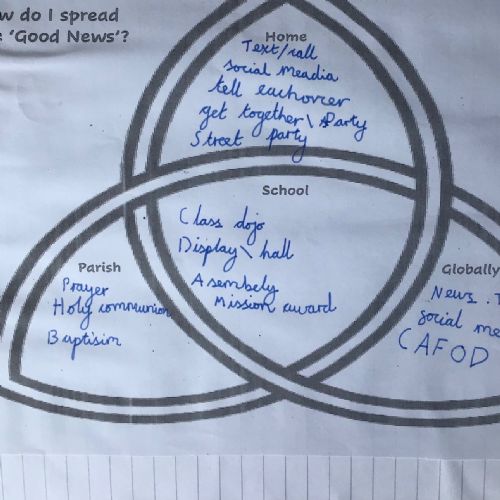 w do I spread
e 'Good News'?
Home
Text/call
social meadia
tell eachorcer
get together\ Party
Street party
School
Class dojo
Display\ hall
Asembely
Mission award
Parish
Prayer
Holy communion
Baptisim
Globally
News.
social me
CAFOD